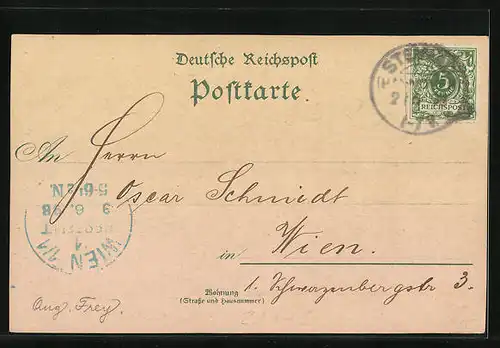 Deutsche Reichspost
Postkarte.
5
REICHSPOST
An Herrn
Oscar Schmidt
in Wien.
Wohnung
(Straße und Hausnummer)
1. Schwarzenbergstr 3.
WIEN 1/1
1
9 6. 98
5-6½N.
Aug. Frey.